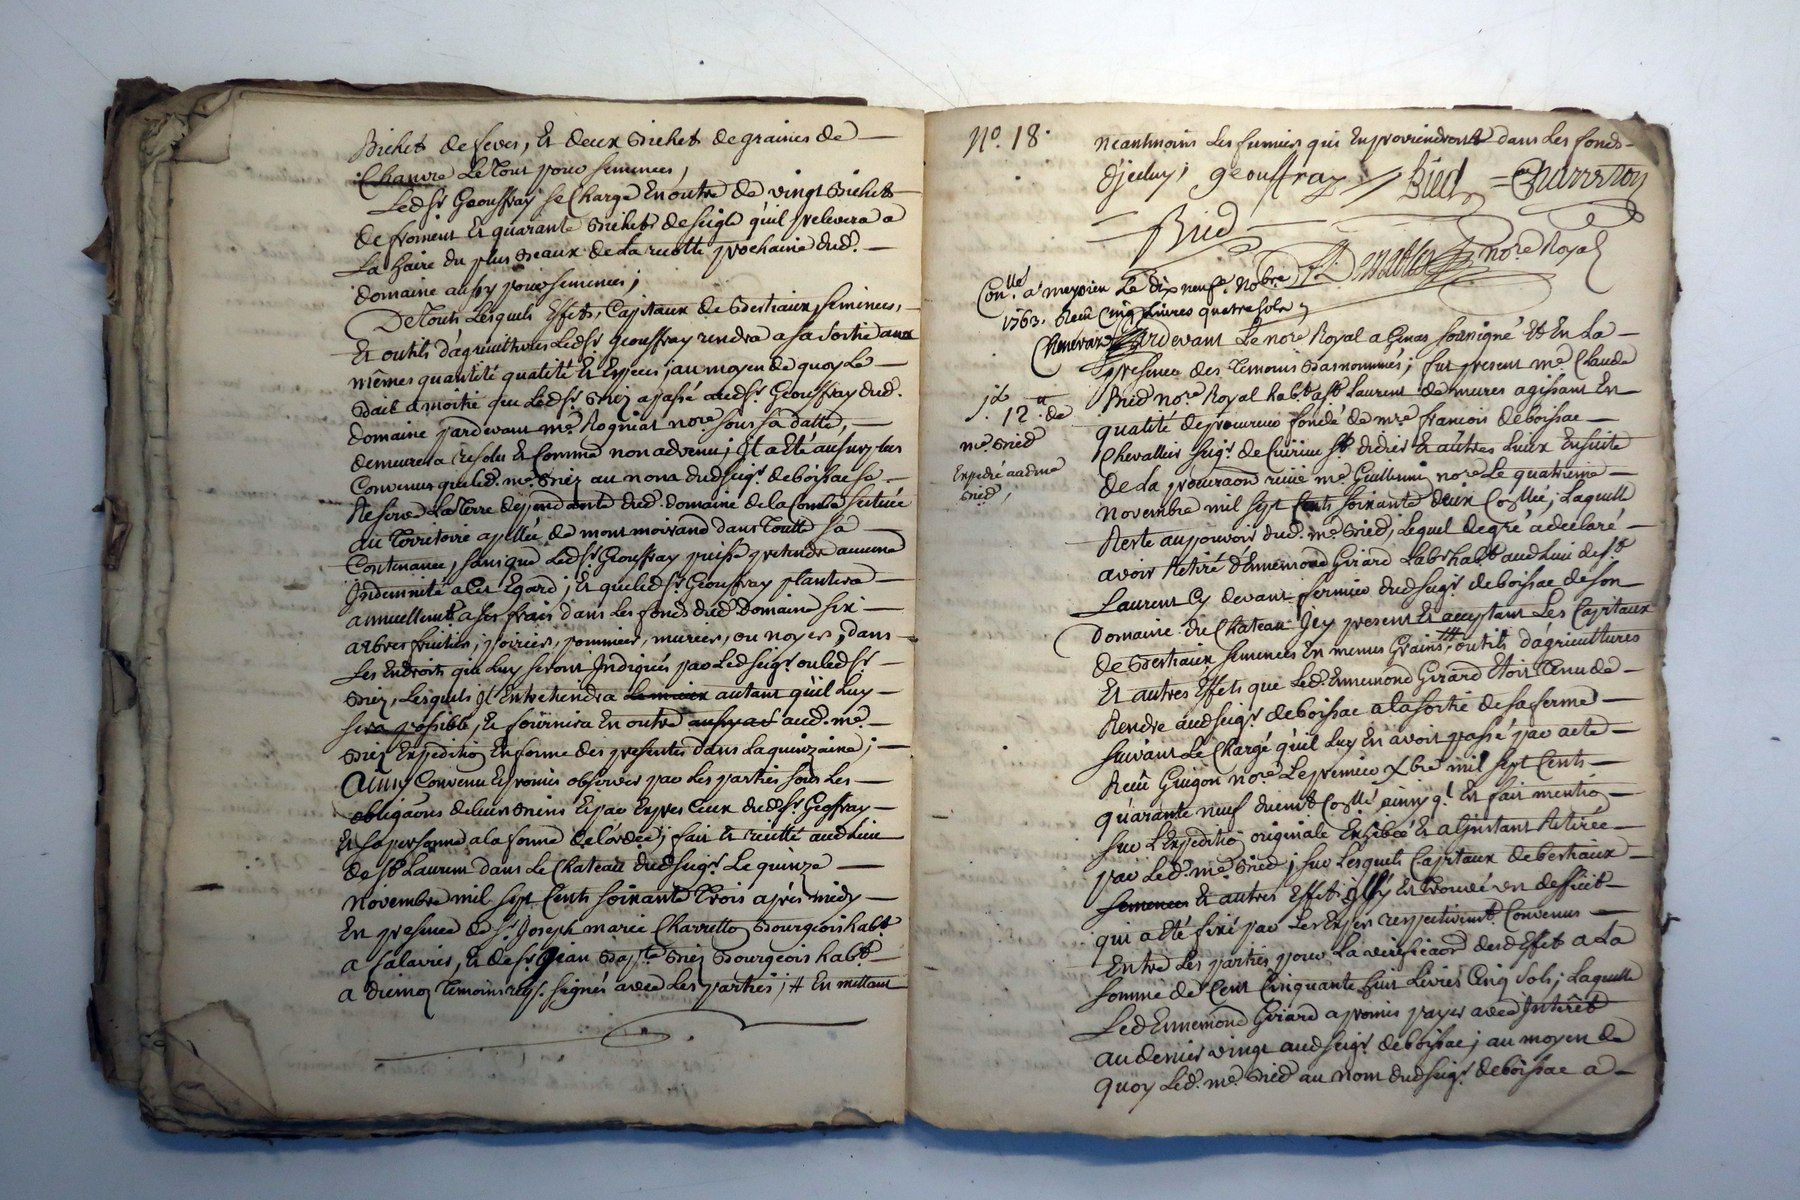 Bichet de feves, Et deux Bichets de graines de
Chanvre Le Tout pour semences,
Led Sr. Geouffray se Charge En outre de vingt Bichets
de froment Et quarante Bichets de seigle qu'il prelevera a
La haire du plus Beaux de La recolte prochaine dud.
domaine aussy pour semences;
De Touts Lesquels Effets, Capitaux de Bestiaux, semences,
Et outils d'agricultures Led Sr. Geouffray rendra a sa sortie aux
mêmes quantité qualité Et Especes; au moyen de quoy Le
Bail a moitié que Led Sr. Briez a passé aud Sr. Geouffray dud.
domaine pardevant Me. Rogniat nore. sous sa datte,
demeurera resolu Et Comme non advenu; Il a Eté aussy
Convenu que led. me. Briez au nom dud seigr. de boissac se
Reserve La Terre dependante dud. domaine de la Combe scituée
au Territoire apellée de mont moirand dans Toutte sa
Contenance, sans que Led Sr. Geouffray puisse pretendre aucune
Indemnité a Cet Egard; Et que led Sr. Geouffray plantera
annuellemt. a ses frais dans Les fonds dud domaine six
arbres fruitiers, poiriers, pommiers, muriers, ou noyers, dans
Les Endroits qui Luy seront Indiqués par Led seigr. ou led Sr.
Briez, Lesquels Il Entretiendra autant qu'il Luy
sera possible, Et fournira En outre aud. me.
Briez Expedition En forme des presentes dans La quinzaine;
Ainsy Convenu Et promis observer par Les parties sous Les
obligaons de leurs Biens Et par Exprés Ceux dud Sr. Geoffray
Et sa personne a la forme de l'ordce; fait Et recitté aud Lieu
de St. Laurent dans Le Chateau dud seigr. Le quinze
novembre mil sept Cents soixante Trois aprés midy
En presence de Sr. Joseph marie Charretton Bourgeois habt.
a salavres, Et de Sr. Jean Bapte. Briez Bourgeois habt.
a diemoz Temoins reqs. signés avec Les parties; # En mettant
No. 18.
neantmoins Les fumiers qui En proviendront dans Les fonds
d'jceluy; geouffray Bied Charretton
Bied
nore Royal
Conllé. a meyzieu Le dix neufe. Nobre
1763. Receu Cinq Livres quatre sols
Chenevaz
Pardevant Le nore Royal a Genas soussigné Et En La
presence des Temoins Basnommés; fut present me. Claude
Bied nore Royal habt. a St. Laurent de mures agissant En
12 tt de
me. Bied
Expedié aud me
Bied
qualité de procureur fondé de mre. francois de boissac
Chevallier seigr. de Cuirieu St. didier Et autres Lieux Ensuite
de La procuraon receüe me. Guillermin nore Le quatrieme
novembre mil sept Cents soixante deux Conllée; Laquelle
Reste au pouvoir dud. me. Bied, Lequel de gré a declaré
avoir Retiré d'Ennemond Girard Labr habt. aud Lieu de St.
Laurent Cy devant fermier dud seigr. de boissac de son
domaine du Chateau Jcy present Et acceptant Les Capitaux
de Bestiaux, semences En menus Grains, # outils d'agricultures
Et autres Effets que Led. Ennemond Girard Etoit Tenu de
Rendre aud seigr. de boissac a la sortie de sa ferme
suivant Le Chargé qu'il Luy En avoit passé par acte
Receu Guigon nore Le premier Xbre mil sept Cents
quarante neuf duemt. Conllé ainsy qu'il En fait mention
sur L'Expedition originale Exhibée Et a l'jnstant Retirée
par Led. me. Bied; sur Lesquels Capitaux de bestiaux
semences Et autres Effets il s'y Est trouvé un defficit
qui a Eté fixé par Les Expers respectivemt. Convenus
Entre Les parties pour La verificaon desd Effets a La
somme de Cent Cinquante huit Livres Cinq sols; Laquelle
Led Ennemond Girard a promis payer avec Interêt
au denier vingt aud seigr. de boissac; au moyen de
quoy Led. me. Bied au nom dud seigr. de boissac a